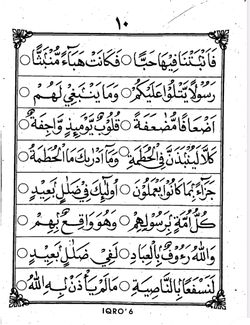 ١٠
فَأَنْبَتْنَا فِيهَا حَبًّا ○ فَكَانَتْ هَبَاءً مُنْبَثًّا ○
رَسُولًا يَتْلُوا عَلَيْكُمْ ○ وَمَا يَنْبَغِي لَهُمْ ○
اَضْعَافًا مُضٰعَفَةً ○ قُلُوبٌ يَوْمَئِذٍ وَاجِفَةٌ ○
كَلَّا لَيُنْبَذَنَّ فِي الْحُطَمَةِ ○ وَمَا أَدْرٰىكَ مَا الْحُطَمَةُ ○
جَزَاءً بِمَا كَانُوا يَعْمَلُونَ ○ اُولٰئِكَ فِي ضَلٰلٍ بَعِيدٍ ○
كُلُّ اُمَّةٍ بِرَسُولِهِمْ ○ وَهُوَ وَاقِعٌ بِهِمْ ○
وَاللهُ رَءُوفٌ بِالْعِبَادِ ○ لَفِي ضَلٰلٍ بَعِيدٍ ○
لَنَسْفَعًا بِالنَّاصِيَةِ ○ مَا لَمْ يَأْذَنْ بِهِ اللهُ ○
IQRO' 6